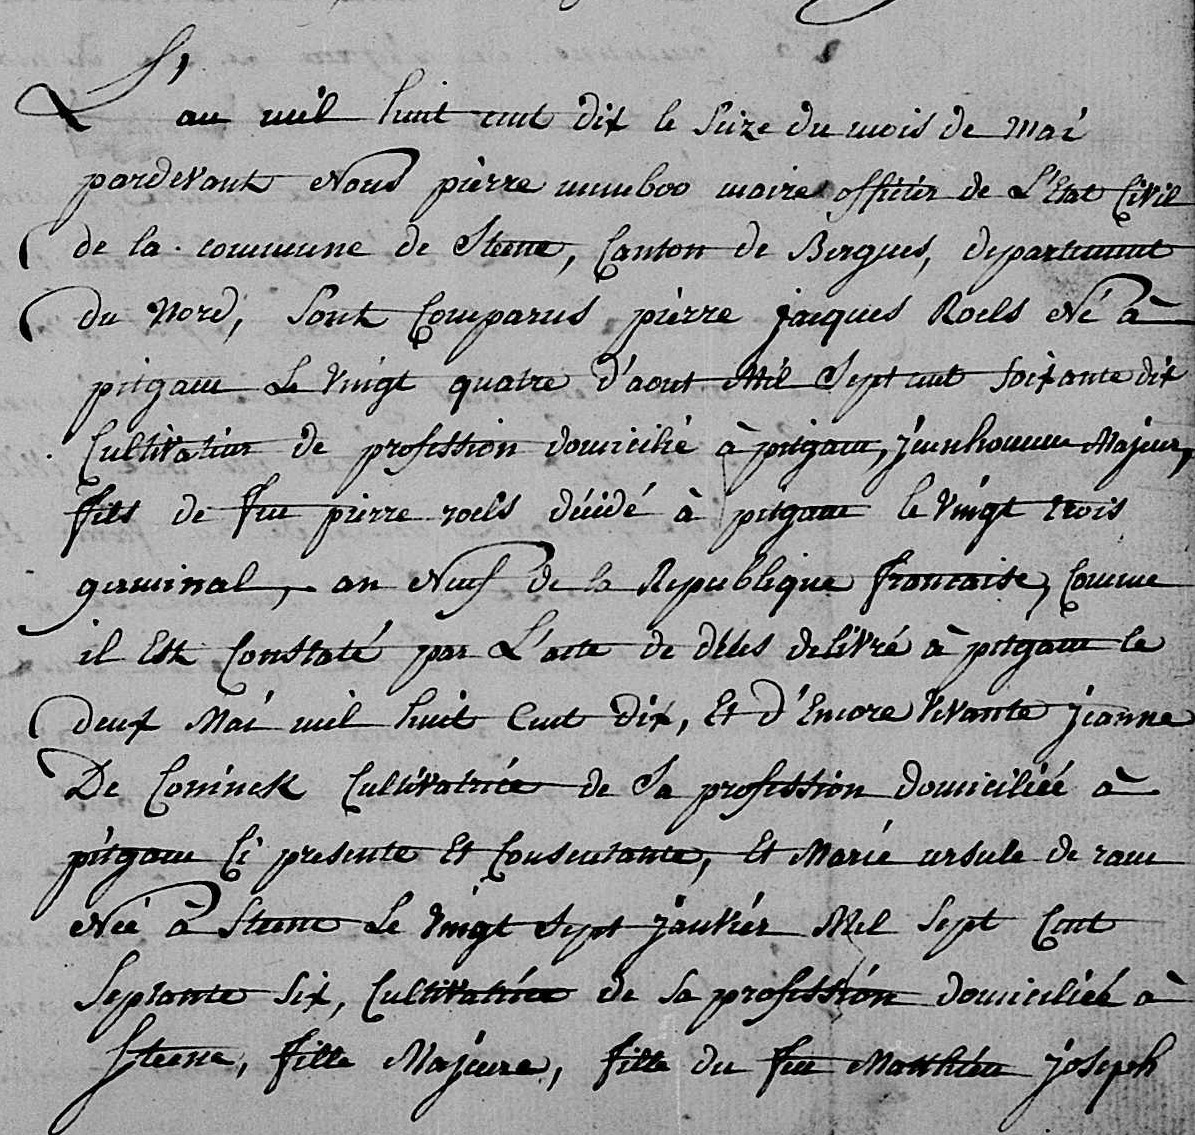 L'an mil huit cent dix le seize du mois de Mai
pardevant Nous pierre maire officier de L'Etat Civil
de la commune de Steene, Canton de Bergues, departement
du Nord, sont Comparus pierre jacques Roels Né à
pitgam le vingt quatre d'aout Mil Sept cent soixante dix
Cultivateur de profession domicilié à pitgam, jeunhomme Majeur,
fils de feu pierre roels décédé à pitgam le vingt trois
germinal, an Neuf de la Republique francaise, Comme
il Est Constaté par L'acte de deces delivré à pitgam le
deux Mai mil huit Cent dix, Et d'Encore Vivante jeanne
De Coninck Cultivatrice de Sa profession domiciliée à
pitgam Ci presente Et Consentante, Et Marie ursule de ram
Née à Steene Le Vingt Sept janvier Mil Sept Cent
Septante Six, Cultivatrice de Sa profession domiciliée à
Steene, fille Majeure, fille du feu Matthieu joseph